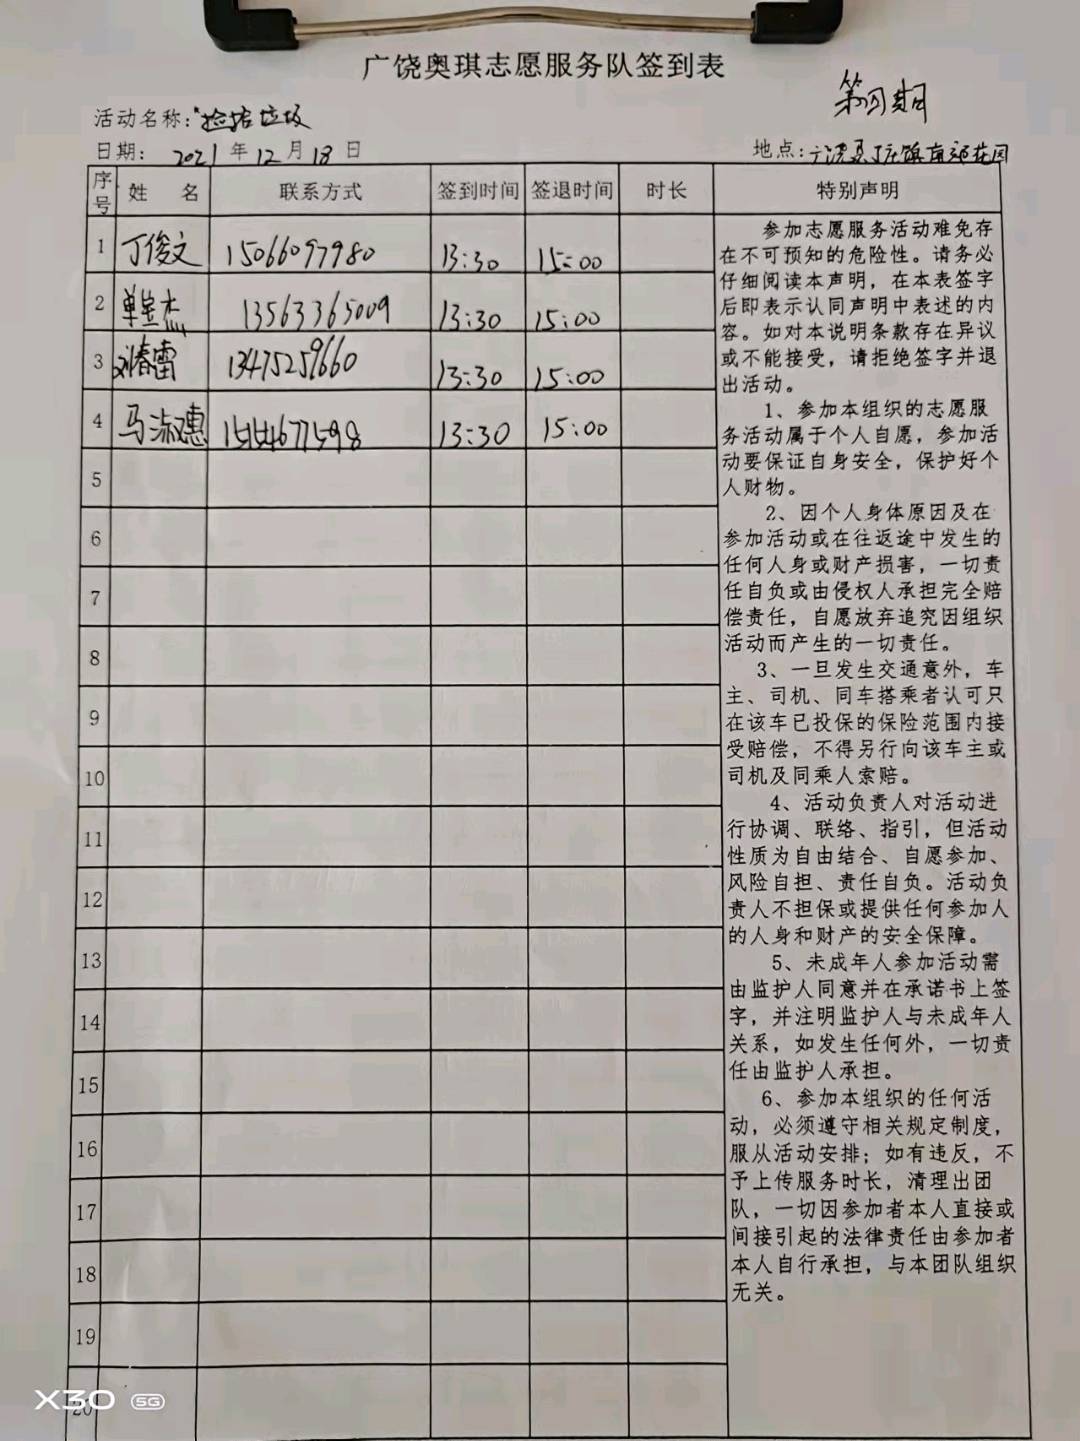 广饶奥琪志愿服务队签到表
第四期
活动名称："捡拾垃圾
日期： 2021 年 12 月 18 日 地点：广饶县丁庄镇南郊花园
序号 姓 名 联系方式 签到时间 签退时间 时长 特别声明
1 丁俊文 15066097980 13:30 15:00
2 单 杰 13563365009 13:30 15:00
3 刘春雷 13475259660 13:30 15:00
4 马淑惠 13:30 15:00
5
6
7
8
9
10
11
12
13
14
15
16
17
18
19
20
参加志愿服务活动难免存
在不可预知的危险性。请务必
仔细阅读本声明，在本表签字
后即表示认同声明中表述的内
容。如对本说明条款存在异议
或不能接受，请拒绝签字并退
出活动。
1、参加本组织的志愿服
务活动属于个人自愿，参加活
动要保证自身安全，保护好个
人财物。
2、因个人身体原因及在
参加活动或在往返途中发生的
任何人身或财产损害，一切责
任自负或由侵权人承担完全赔
偿责任，自愿放弃追究因组织
活动而产生的一切责任。
3、一旦发生交通意外，车
主、司机、同车搭乘者认可只
在该车已投保的保险范围内接
受赔偿，不得另行向该车主或
司机及同乘人索赔。
4、活动负责人对活动进
行协调、联络、指引，但活动
性质为自由结合、自愿参加、
风险自担、责任自负。活动负
责人不担保或提供任何参加人
的人身和财产的安全保障。
5、未成年人参加活动需
由监护人同意并在承诺书上签
字，并注明监护人与未成年人
关系，如发生任何外，一切责
任由监护人承担。
6、参加本组织的任何活
动，必须遵守相关规定制度，
服从活动安排；如有违反，不
予上传服务时长，清理出团
队，一切因参加者本人直接或
间接引起的法律责任由参加者
本人自行承担，与本团队组织
无关。
X30 5G